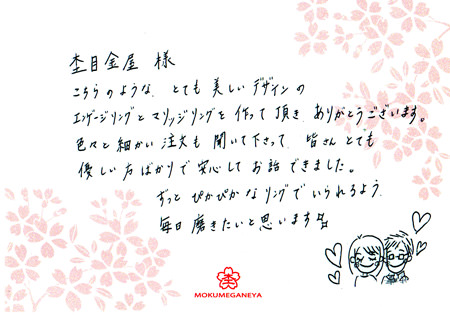 杢目金屋 様
こちらのような、とても 美しい デザインの
エンゲージリングと マリッジリングを 作って 頂き ありがとうございます。
色々と 細かい 注文も 聞いて下さって、皆さん とても
優しい 方 ばかりで 安心して お話 できました。
ずっと ぴかぴかな リングで いられるよう、
毎日 磨きたいと 思います
MOKUMEGANEYA